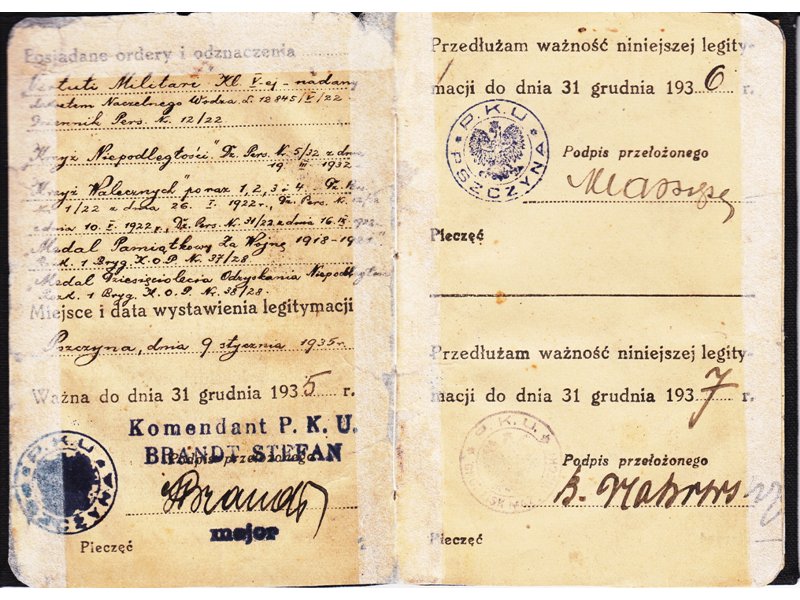 Posiadane ordery i odznaczenia
"Virtuti Militari" Kl V-ej - nadany
dekretem Naczelnego Wodza L. 12845/V/22
Dziennik Pers. N. 12/22
"Krzyż Niepodległości" Dz. Pers. N. 5/32 z dnia
19 III 1932
"Krzyż Walecznych" po raz 1, 2, 3 i 4 - Dz. Pers.
N. 1/22 z dnia 26. I. 1922 r., Dz. Pers. N. 12/22
z dnia 10. I. 1922 r., Dz. Pers. N. 31/22 z dnia 16. IX 1922
"Medal Pamiątkowy Za Wojnę 1918-1921"
Rozk. 1 Bryg. K.O.P. N. 37/28
"Medal Dziesięciolecia Odzyskania Niepodległości"
Rozk. 1 Bryg. K.O.P. Nr. 38/28
Miejsce i data wystawienia legitymacji
Pszczyna, dnia 9 stycznia 1935 r.
Ważna do dnia 31 grudnia 1935 r.
Komendant P. K. U.
BRANDT STEFAN
Podpis przełożonego
Brandt
major
P.K.U.
PSZCZYNA
Pieczęć
Przedłużam ważność niniejszej legity-
macji do dnia 31 grudnia 1936 r.
P.K.U.
PSZCZYNA
Podpis przełożonego
Pieczęć
Przedłużam ważność niniejszej legity-
macji do dnia 31 grudnia 1937 r.
P.K.U.
Podpis przełożonego
Pieczęć